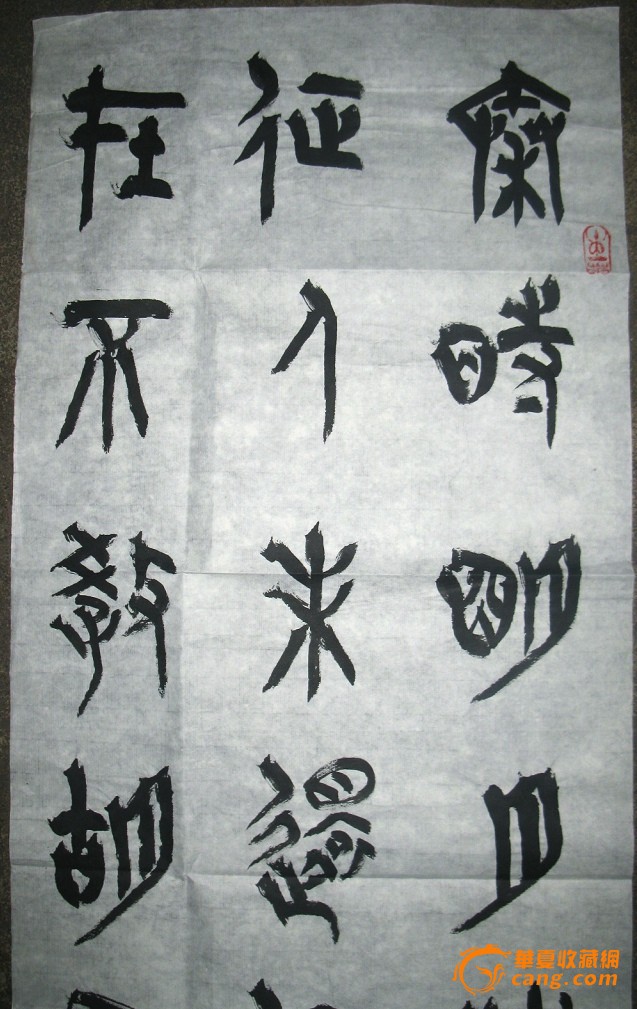 秦時明月
征人未還
在不教胡
華夏收藏網
cang.com